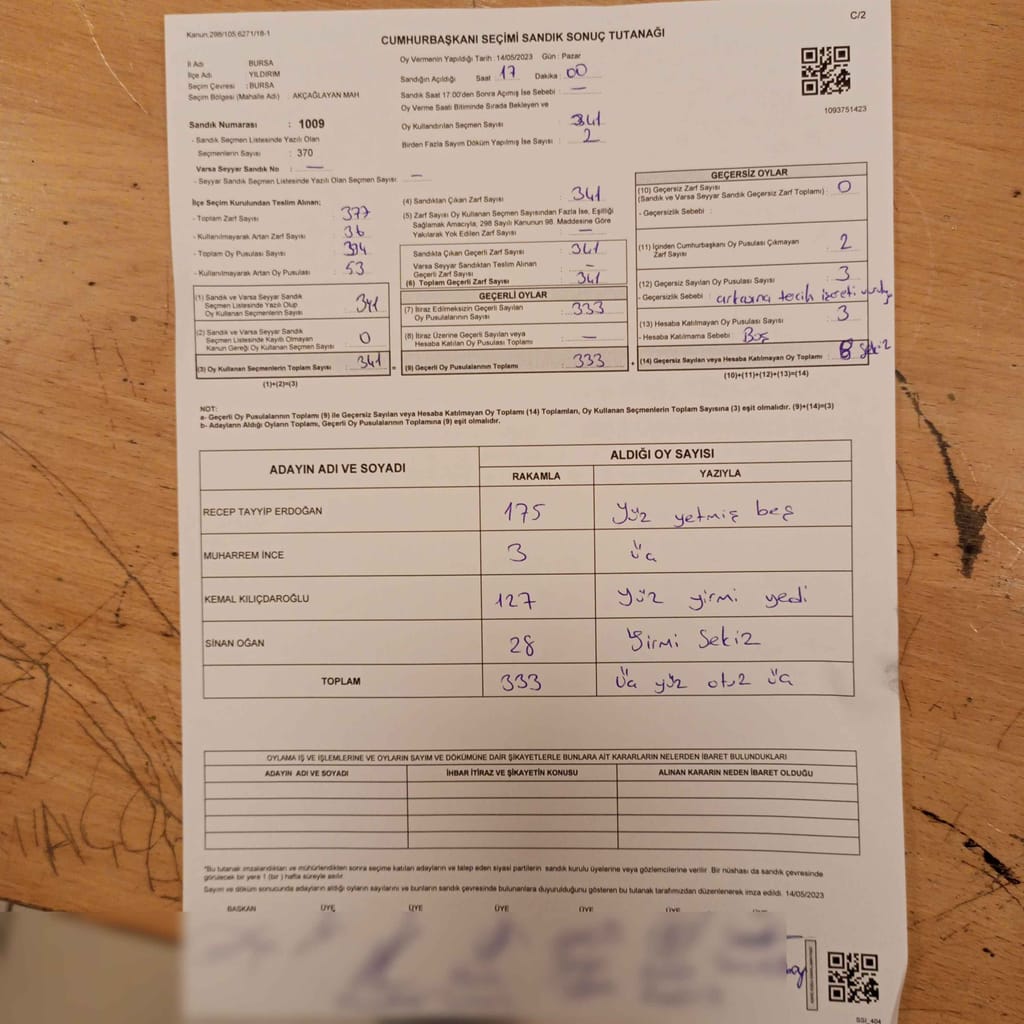 Kanun:298/105,6271/18-1
C/2
CUMHURBAŞKANI SEÇİMİ SANDIK SONUÇ TUTANAĞI
İl Adı BURSA
İlçe Adı YILDIRIM
Seçim Çevresi : BURSA
Seçim Bölgesi (Mahalle Adı) : AKÇAĞLAYAN MAH
Oy Vermenin Yapıldığı Tarih :14/05/2023 Gün : Pazar
Sandığın Açıldığı Saat 17 Dakika : 00
Sandık Saat 17.00'den Sonra Açımış İse Sebebi : —
Oy Verme Saati Bitiminde Sırada Bekleyen ve
Oy Kullandırılan Seçmen Sayısı : 341
Birden Fazla Sayım Döküm Yapılmış İse Sayısı : 2
1093751423
Sandık Numarası : 1009
- Sandık Seçmen Listesinde Yazılı Olan
Seçmenlerin Sayısı : 370
Varsa Seyyar Sandık No : —
- Seyyar Sandık Seçmen Listesinde Yazılı Olan Seçmen Sayısı: —
İlçe Seçim Kurulundan Teslim Alınan;
- Toplam Zarf Sayısı : 377
- Kullanılmayarak Artan Zarf Sayısı : 36
- Toplam Oy Pusulası Sayısı :
- Kullanılmayarak Artan Oy Pusulası : 53
(1) Sandık ve Varsa Seyyar Sandık
Seçmen Listesinde Yazılı Olup
Oy Kullanan Seçmenlerin Sayısı : 341
(2) Sandık ve Varsa Seyyar Sandık
Seçmen Listesinde Kayıtlı Olmayan
Kanun Gereği Oy Kullanan Seçmen Sayısı : 0
(3) Oy Kullanan Seçmenlerin Toplam Sayısı : 341
(1)+(2)=(3)
(4) Sandıktan Çıkan Zarf Sayısı : 341
(5) Zarf Sayısı Oy Kullanan Seçmen Sayısından Fazla İse, Eşitliği
Sağlamak Amacıyla; 298 Sayılı Kanunun 98. Maddesine Göre
Yakılarak Yok Edilen Zarf Sayısı : —
Sandıkta Çıkan Geçerli Zarf Sayısı : 341
Varsa Seyyar Sandıktan Teslim Alınan
Geçerli Zarf Sayısı : —
(6) Toplam Geçerli Zarf Sayısı : 341
GEÇERLİ OYLAR
(7) İtiraz Edilmeksizin Geçerli Sayılan
Oy Pusulalarının Sayısı : 333
(8) İtiraz Üzerine Geçerli Sayılan veya
Hesaba Katılan Oy Pusulası Toplamı : —
(9) Geçerli Oy Pusulalarının Toplamı : 333
GEÇERSİZ OYLAR
(10) Geçersiz Zarf Sayısı
(Sandık ve Varsa Seyyar Sandık Geçersiz Zarf Toplamı) : 0
- Geçersizlik Sebebi :
(11) İçinden Cumhurbaşkanı Oy Pusulası Çıkmayan
Zarf Sayısı : 2
(12) Geçersiz Sayılan Oy Pusulası Sayısı : 3
- Geçersizlik Sebebi : arkasına tecih işareti
(13) Hesaba Katılmayan Oy Pusulası Sayısı : 3
- Hesaba Katılmama Sebebi : Boş
(14) Geçersiz Sayılan veya Hesaba Katılmayan Oy Toplamı : 8 Sekiz
(10)+(11)+(12)+(13)=(14)
NOT:
a- Geçerli Oy Pusulalarının Toplamı (9) ile Geçersiz Sayılan veya Hesaba Katılmayan Oy Toplamı (14) Toplamları, Oy Kullanan Seçmenlerin Toplam Sayısına (3) eşit olmalıdır. (9)+(14)=(3)
b- Adayların Aldığı Oyların Toplamı, Geçerli Oy Pusulalarının Toplamına (9) eşit olmalıdır.
ADAYIN ADI VE SOYADI
ALDIĞI OY SAYISI
RAKAMLA YAZIYLA
RECEP TAYYİP ERDOĞAN 175 Yüz yetmiş beş
MUHARREM İNCE 3 Üç
KEMAL KILIÇDAROĞLU 127 Yüz yirmi yedi
SİNAN OĞAN 28 Yirmi Sekiz
TOPLAM 333 Üç yüz otuz üç
OYLAMA İŞ VE İŞLEMLERİNE VE OYLARIN SAYIM VE DÖKÜMÜNE DAİR ŞİKAYETLERLE BUNLARA AİT KARARLARIN NELERDEN İBARET BULUNDUKLARI
ADAYIN ADI VE SOYADI İHBAR İTİRAZ VE ŞİKAYETİN KONUSU ALINAN KARARIN NEDEN İBARET OLDUĞU
"Bu tutanak imzalandıktan ve mühürlendikten sonra seçime katılan adayların ve talep eden siyasi partilerin sandık kurulu üyelerine veya gözlemcilerine verilir. Bir nüshası da sandık çevresinde
görülecek bir yere 1 (bir ) hafta süreyle asılır.
Sayım ve döküm sonucunda adayların aldığı oyların sayılarını ve bunların sandık çevresinde bulunanlara duyurulduğunu gösteren bu tutanak tarafımızdan düzenlenerek imza edildi. 14/05/2023
BAŞKAN ÜYE ÜYE ÜYE ÜYE ÜYE ÜYE